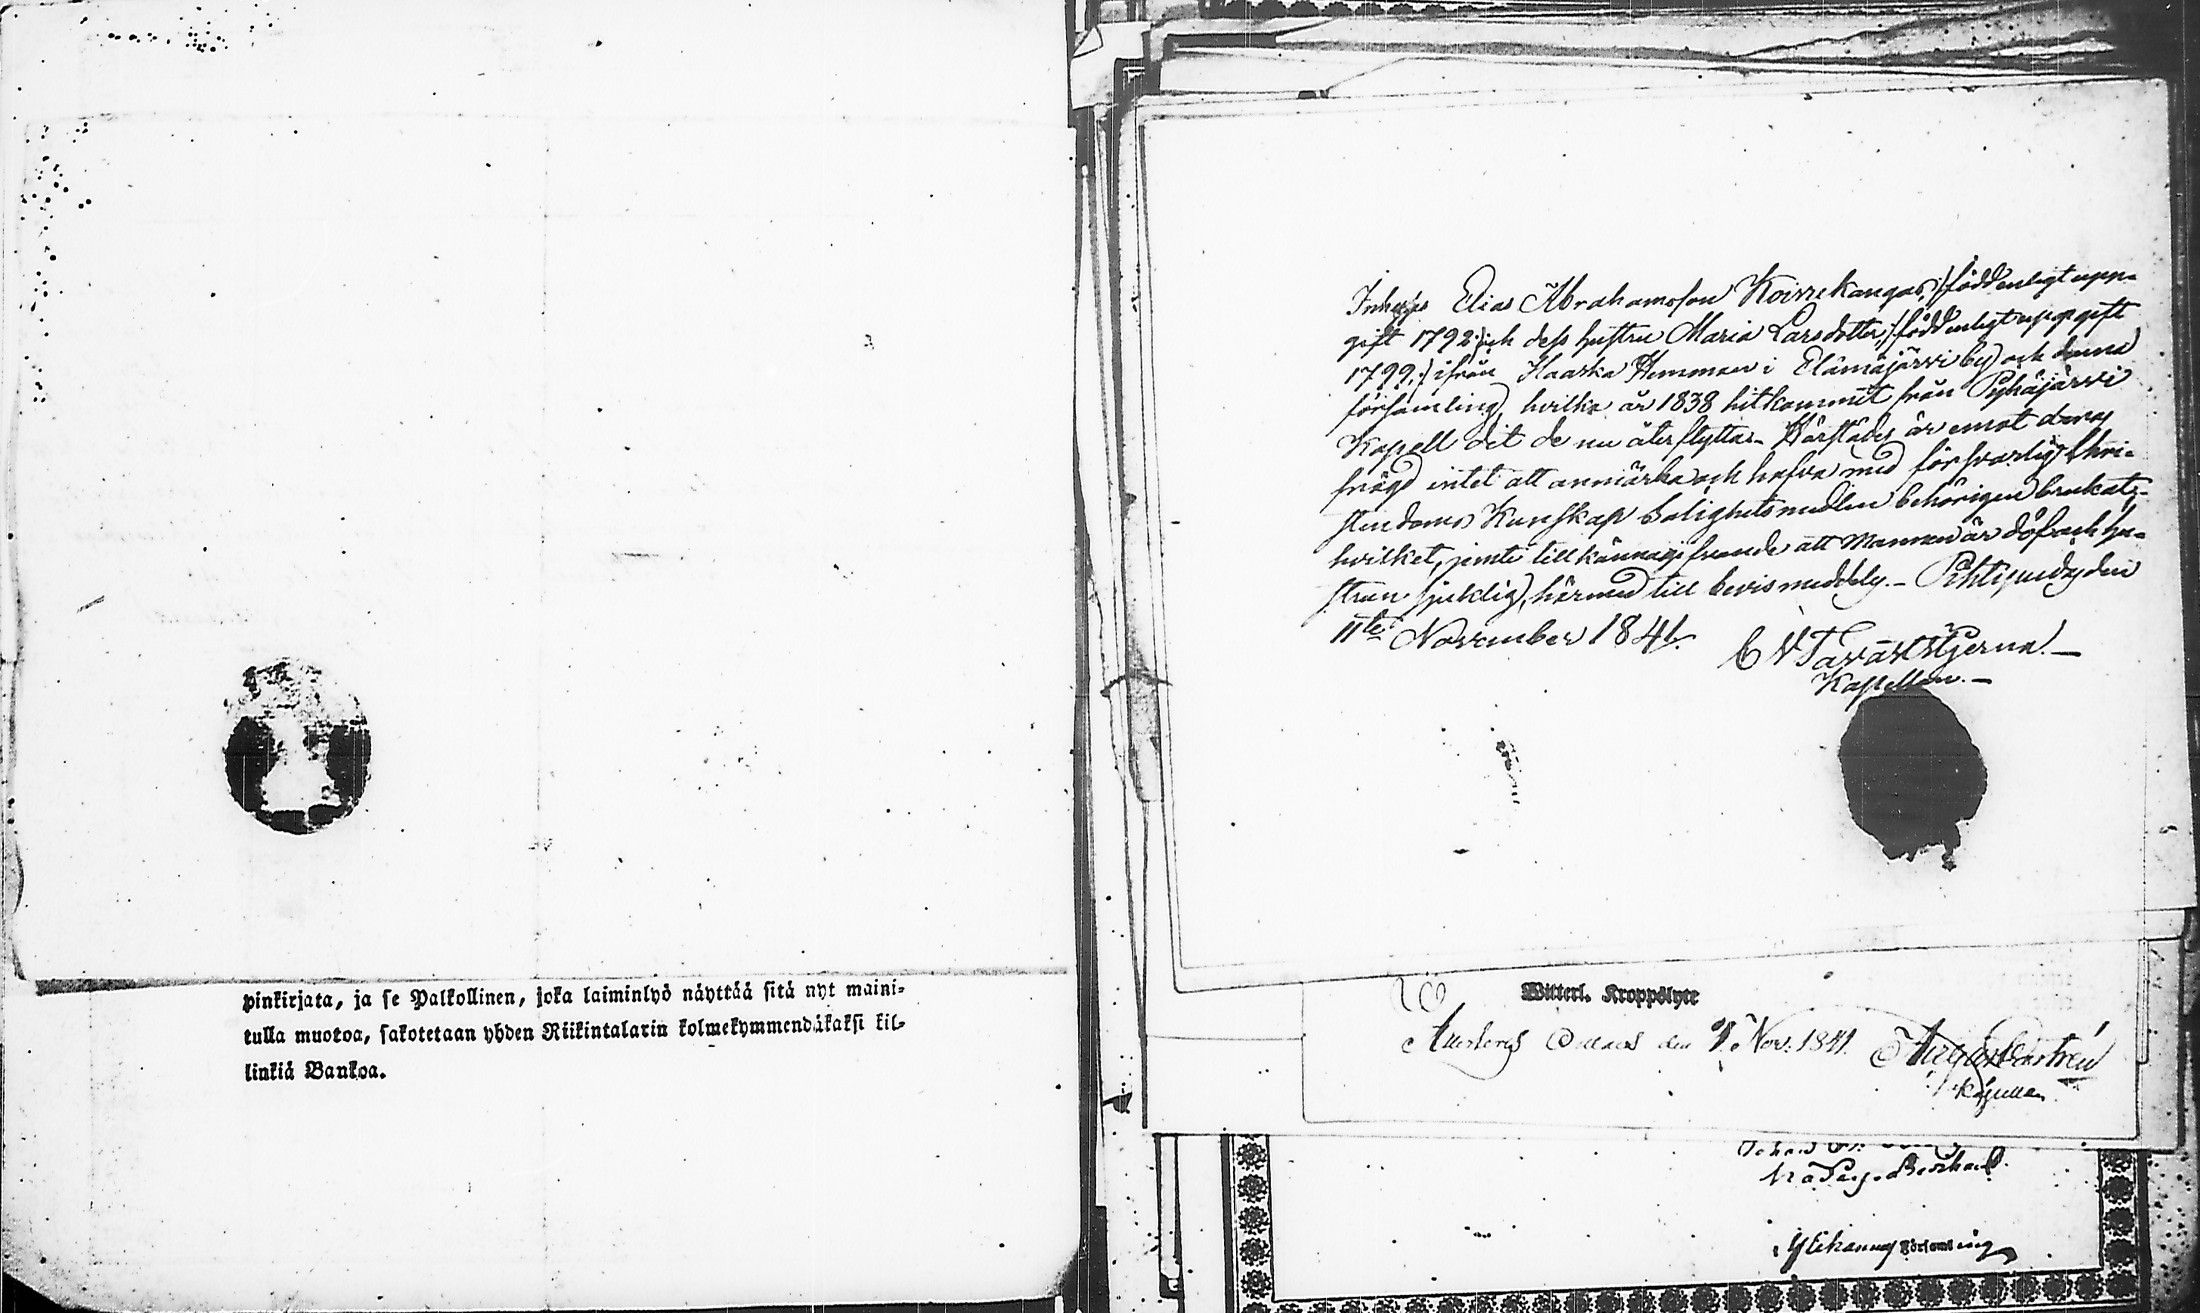 pinkirjata, ja se Palkollinen, joka laiminlyö näyttää sitä nyt maini-
tulla muotoa, sakotetaan yhden Riikintalarin kolmekymmendäkaksi kil-
linkiä Bankoa.
Inhyses Elias Abrahamsson Koirrekangas, /:född enligt upp-
gift 1792:/ och dess hustru Maria Larsdotter, /:född enligt uppgift
1799,:/ ifrån Haarka Hemman i Elämäjärvi by och denna
församling, hvilka år 1838 hitkommit från Pyhäjärvi
Kapell dit de nu återflytta. Härstädes är emot deras
frägd intet att anmärka och hafva med försvarlig Chri-
stendoms Kunskap Salighetsmedlen behörigen brukat;
hvilket, jemte tillkännagifvande att Mannen är döf och hu-
strun sjuklig, härmed till bevis meddelas. - Pihtipudas den
11te November 1841.
C V Tavaststjerna. -
Kapellan. -
Witterl. Kroppslyte
den Nov. 1841. August Castrén
Kapellan
Församling